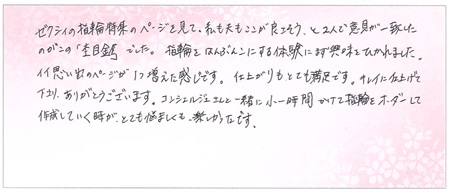 ゼクシィの指輪特集のページを見て、私も夫もここが良さそう、と2人で意見が一致した
のがこの「杢目金屋」でした。指輪をはんぶんこにする体験にまず興味をひかれました。
イイ思い出のページが1つ増えた感じです。仕上がりもとても満足です。キレイに仕上げて
下さり、ありがとうございます。コンシェルジュさんと一緒に小一時間かけて指輪をオーダーして
作成していく時が、とても悩ましくも、楽しかったです。